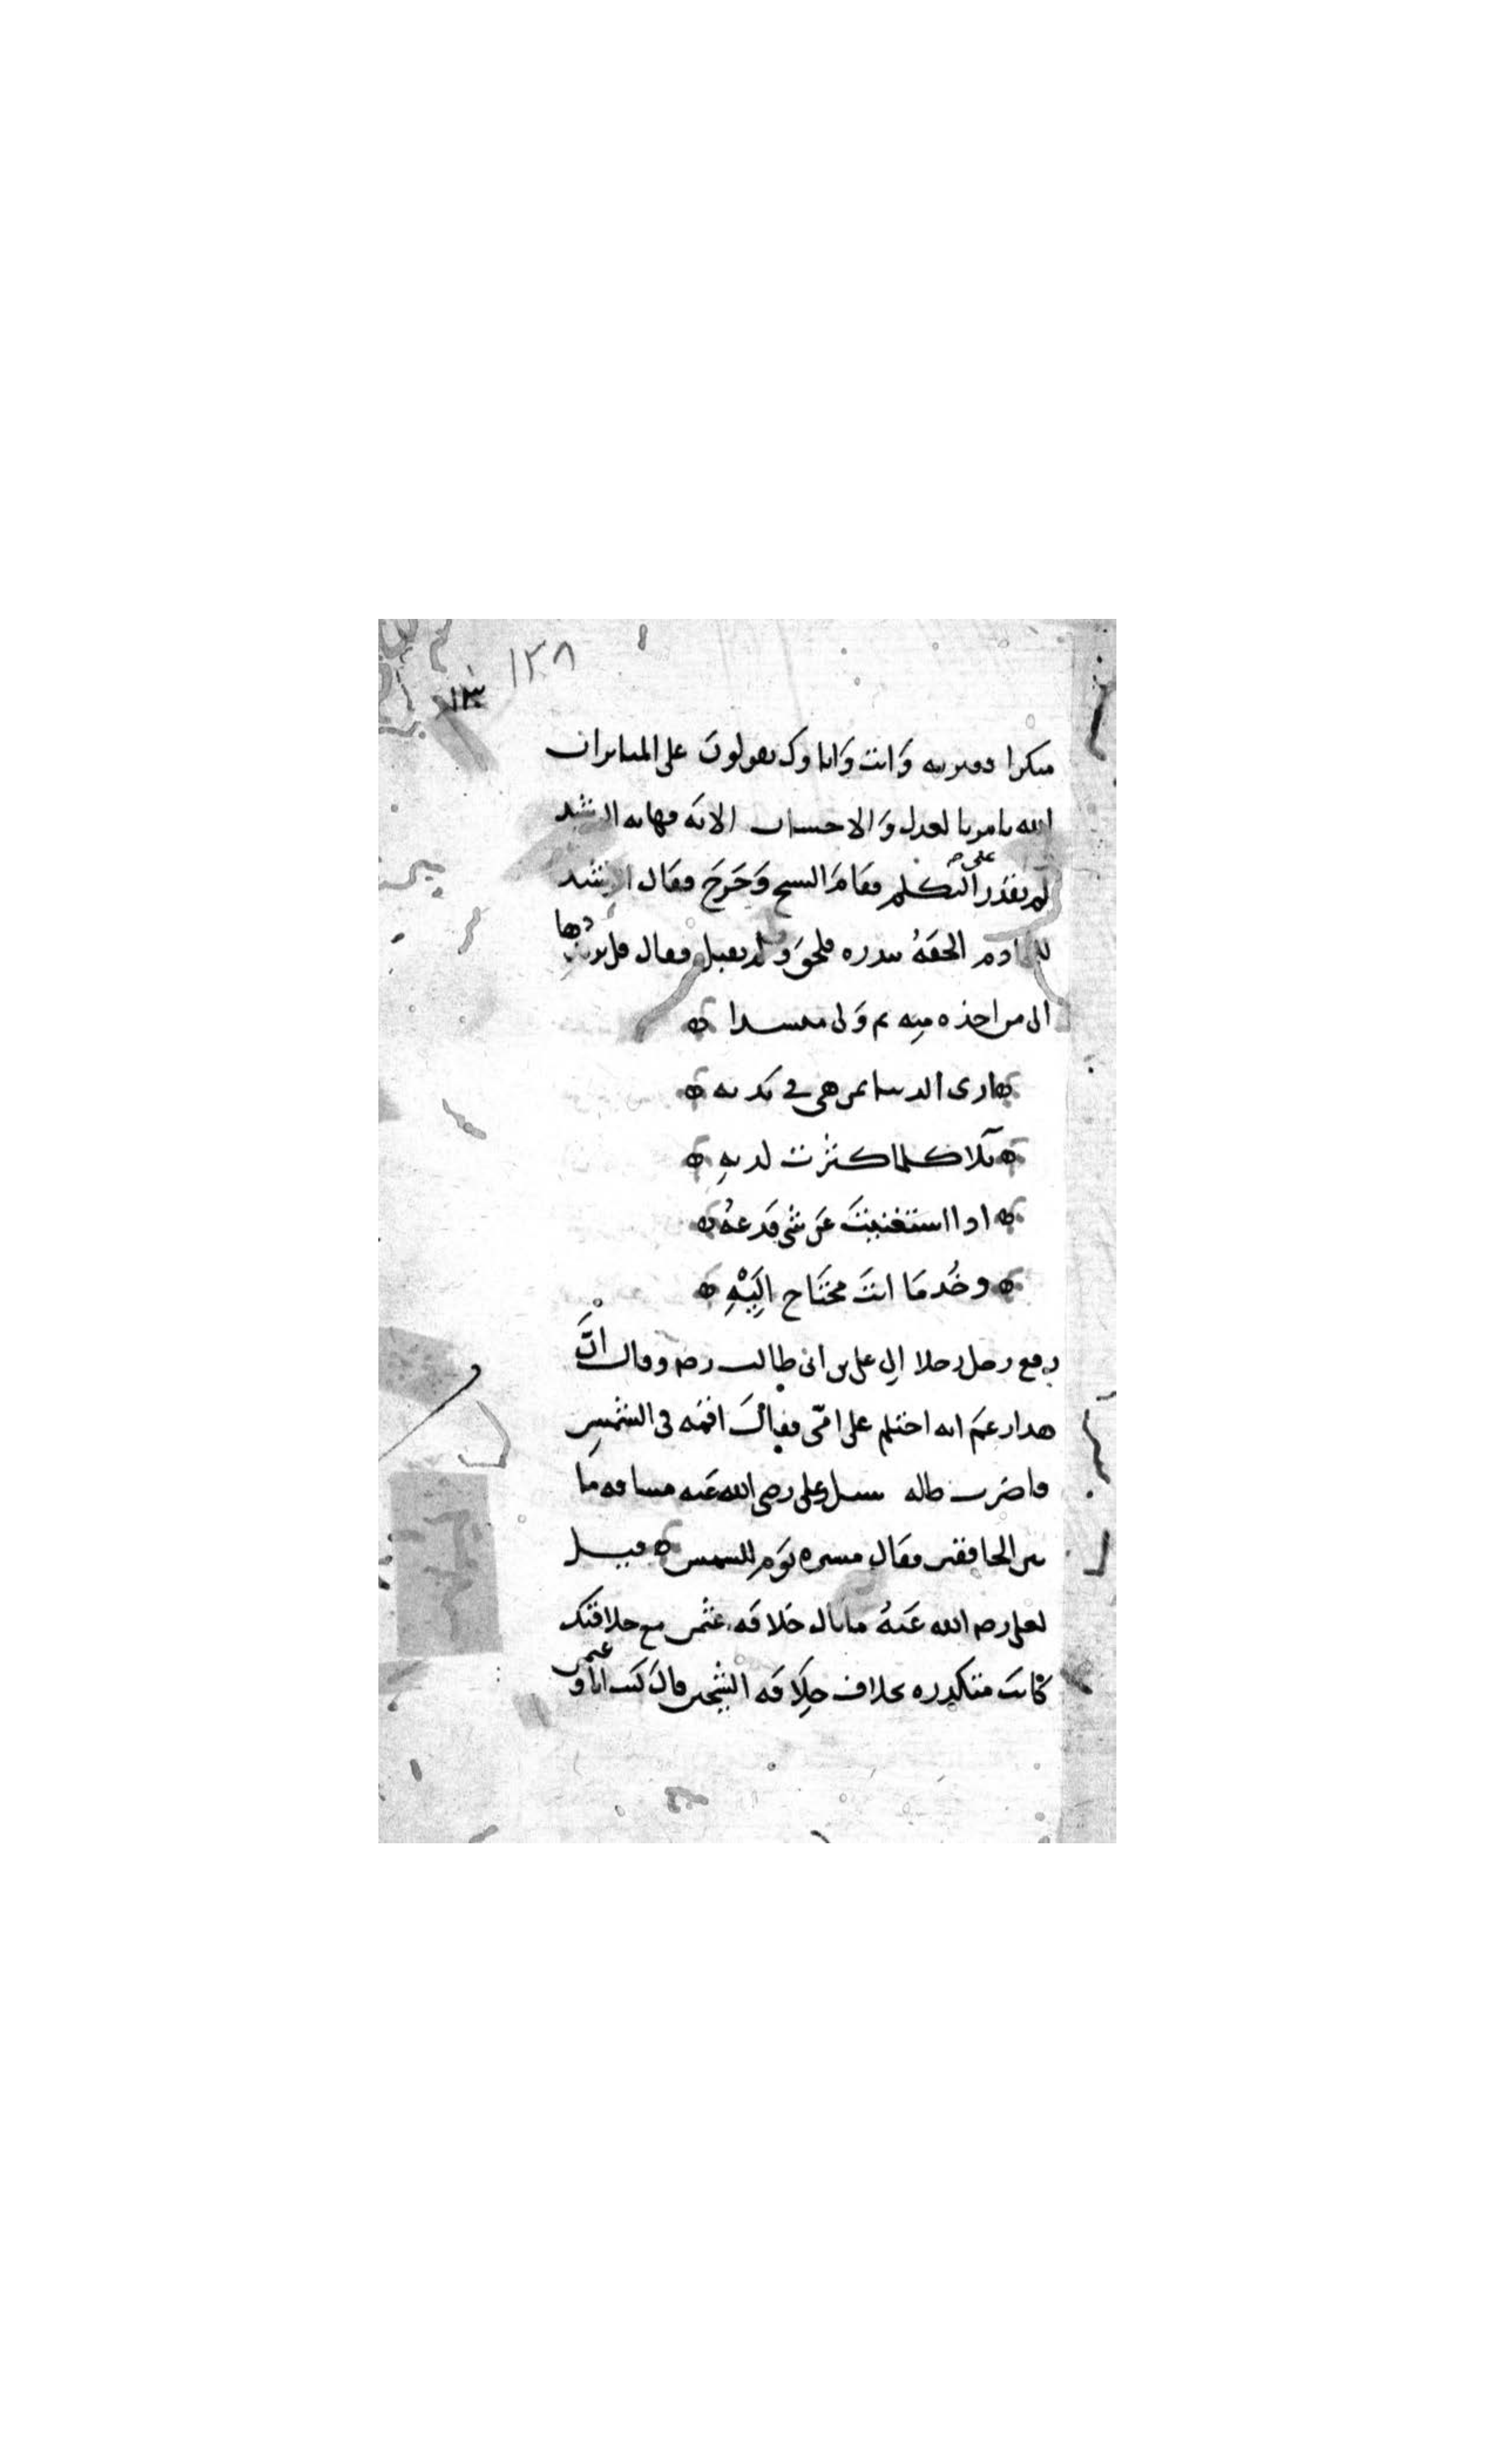 ١٣٨
١٣٠
وانت واباوك يقولون على المنابر ان
الله يامر بالعدل والاحسان الاية فهابه الرشيد
لم يقدر على التكلم فقام الشيخ وخرج فقال الرشيد
للخادم الحقه ببدره فلحق ولم يقبل وقال قل يردها
الى من اخذه منه ثم ولى منشدا ه
ه ارى الدنيا لمن هي في يديه ه
ه بلا كلما كثرت لديه ه
ه اذا استغنيت عن شي فدعه ه
ه وخذ ما انت محتاج اليه ه
رفع رجل رجلا الى على بن ابى طالب رضه وقال ان
هذا زعم انه احتلم على امى فقال اقمه فى الشمس
فاضرب ظله سئل على رضى الله عنه مسافه ما
بين الخافقين فقال مسيره يوم للشمس ه قيل
لعلى رضه الله عنه ما بال خلافه عثمن مع خلافتك
كانت متكدره بخلاف خلافه الشيخين قال كنت انا و عثمن